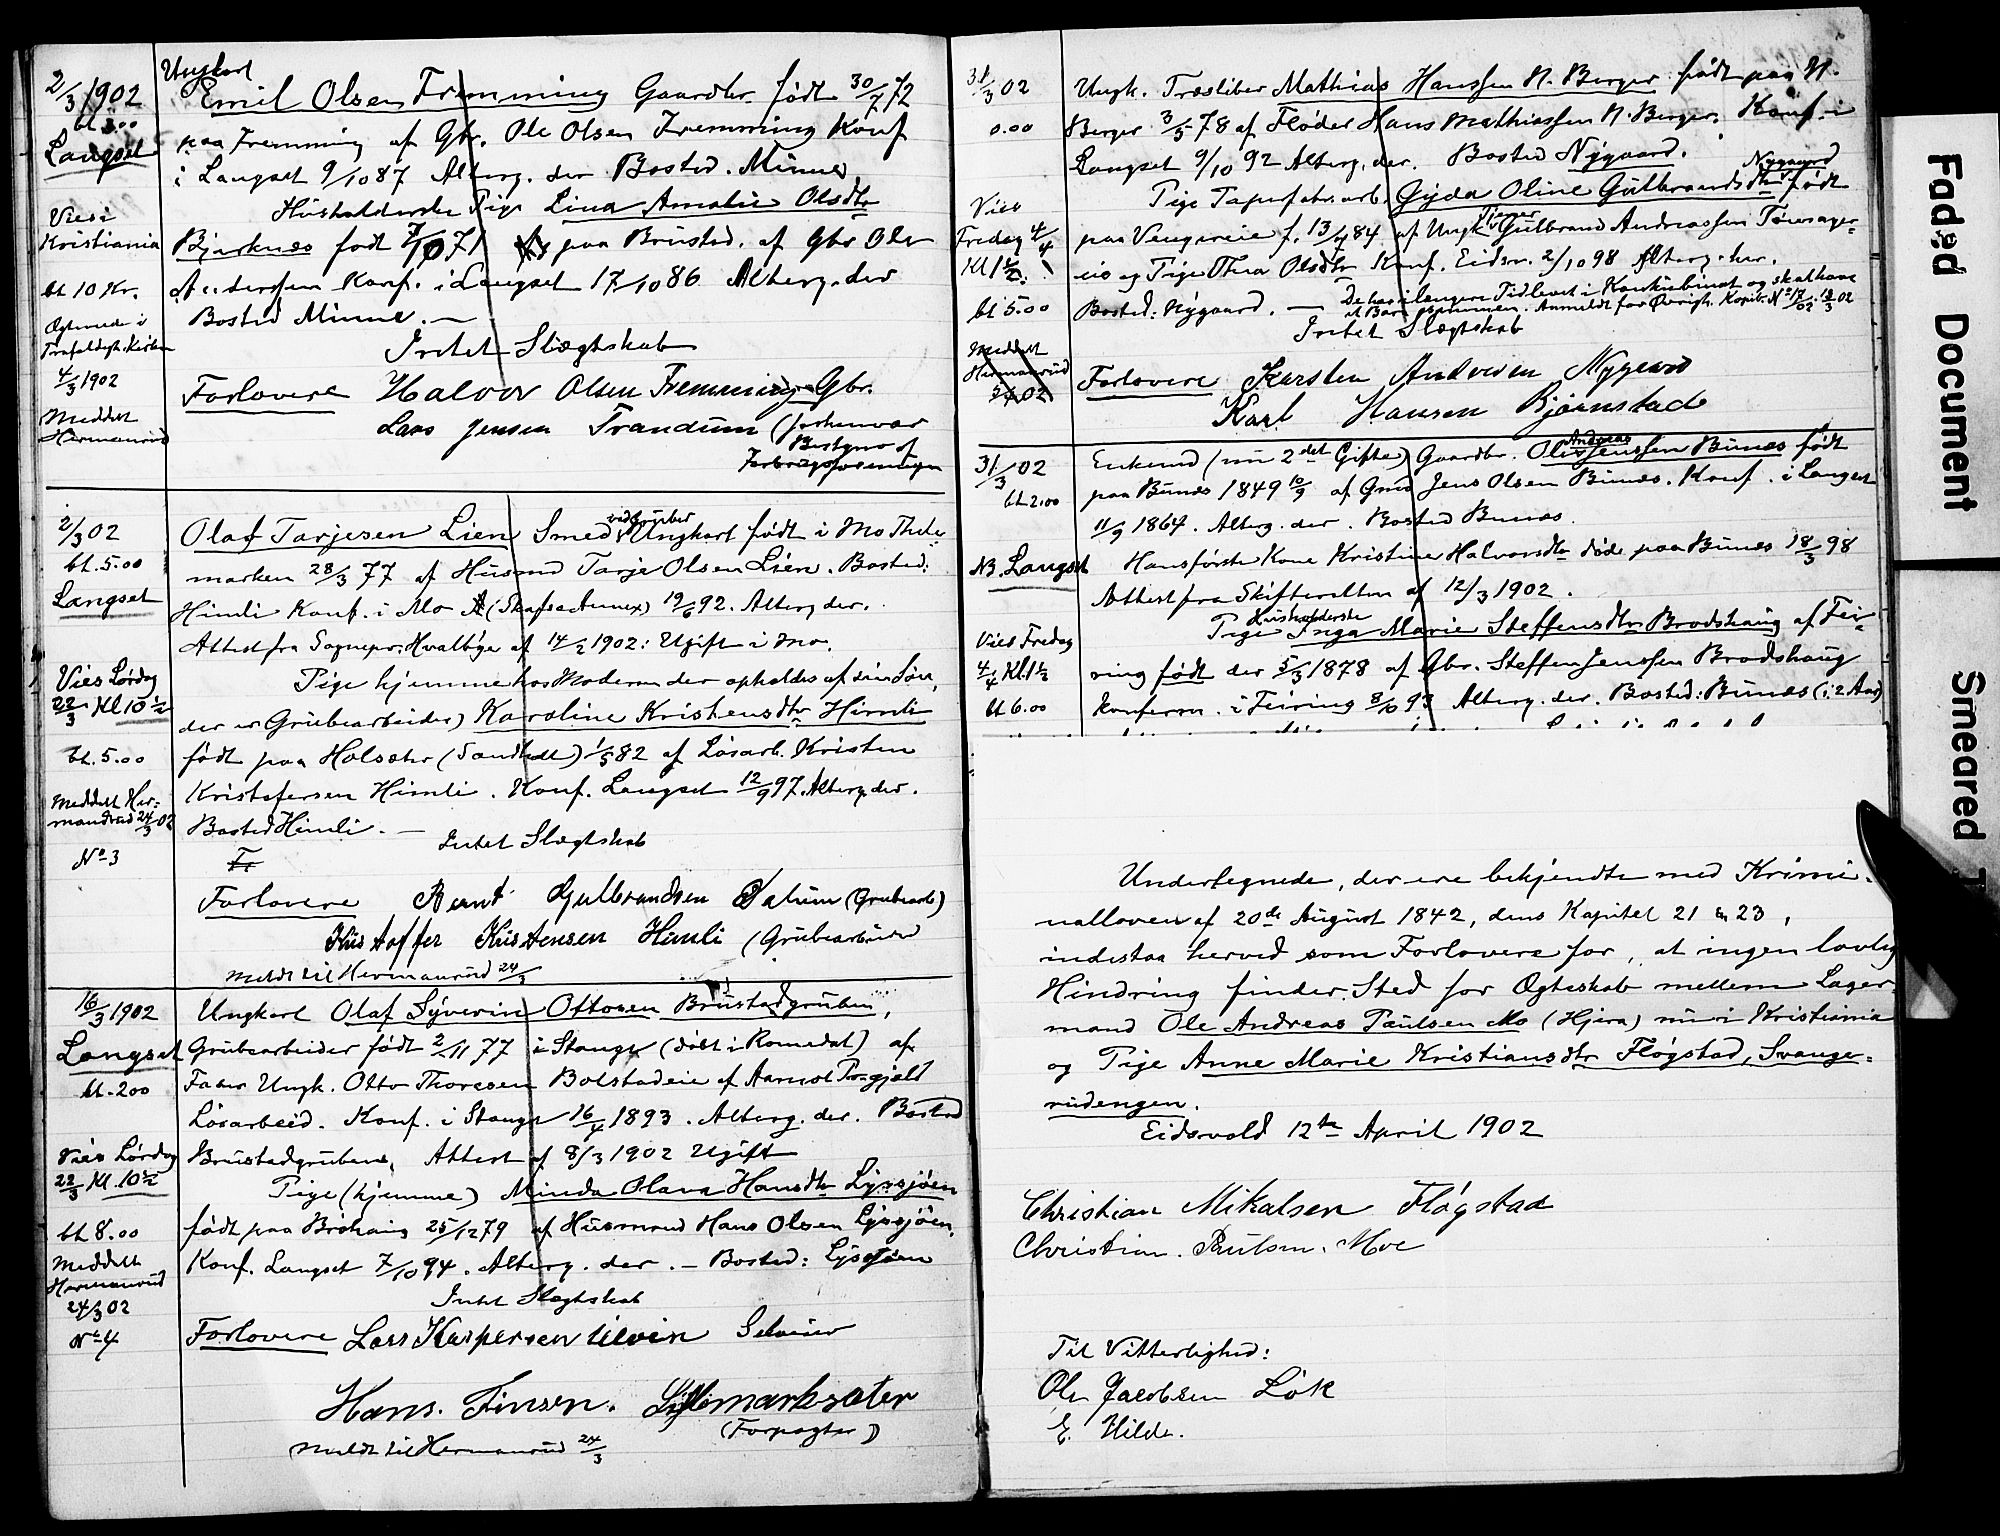 2/3 1902
bt 3.00
Langset
Vies i
Kristiania
bt 10 Kr.
Ægteviede i
Trefoldigh. Kirken
4/3 1902
Meddelt
Hermanrud
Ungkarl
Emil Olsen Fremming Gaardbr. født 30/7 72
paa Fremming af Gbr. Ole Olsen Fremming Konf
i Langset 9/10 87 Alterg. der Bosted. Minne
Husholderske Pige Lina Amalie Olsdtr
Bjerknes født 7/10 71 paa Brustad. af Gbr Ole
Andersen Konf. i Langset 17/10 86 Alterg. der
Bosted Minne. —
Intet Slægtskab
Forlovere Halvor Olsen Fremming Gbr.
Lars Jensen Trandum (forhenvær
Bestyrer af
Forbrugsforeningen
2/3 02
bt. 5.00
Langset
Vies Lørdag
22/3 Kl 10 ½
bt. 5.00
Meddelt Her=
manrud 24/3 02
No 3
Olaf Tarjesen Lien Smed ved Gruber Ungkarl født i Mo Thele=
marken 28/3 77 af Husmd Tarje Olsen Lien. Bosted:
Himli Konf. i Mo (Skafsa Annex) 19/6 92. Alterg der.
Attest fra Sognepr. Hvalbye af 14/2 1902: Ugift i Mo.
Pige hjemme hos Moderen der opholdes af sin Søn,
der er Grubearbeider) Karoline Kristensdtr Himli
født paa Holsæter (Sandhedt) 1/5 82 af Løsarb. Kristen
Kristofersen Himli. Konf. Langset 12/9 97. Alterg. der.
Bosted Himli. — Intet Slægtskab
Forlovere Bernt Gulbrandsen Dalum (Grubearb)
Kristoffer Kristensen Himli (Grubearbeider
Meldt til Hermanrud 24/3
16/3 1902
Langset
bt. 200
Vies Lørdag
22/3 Kl. 10 ½
bt 8.00
Meddelt
Hermanrud
24/3 02
No 4
Ungkarl Olaf Syverin Ottosen Brustadgruben,
Grubearbeider født 2/11 77 i Stange (døbt i Romedal) af
Fader Ungk. Otto Thoresen Bolstadeie af Aarnot Prgjeld
Løsarbeid. Konf. i Stange 16/4 1893. Alterg. der. Bosted
Brustadgruben. Attest af 8/3 1902 Ugift
Pige (hjemme) Minda Olava Hansdtr Lysjøen
født paa Brøhaug 25/12 79 af Husmand Hans Olsen Lysjøen.
Konf. Langset 7/10 94. Alterg. der. — Bosted: Lysjøen
Intet Slægtskab
Forlovere Lars Kaspersen Ulvin Selveier
Hans. Finsen.
(Forpagter)
Meldt til Hermanrud 24/3
31/3 02
0.00
Vies
Fredag 4/4
Kl 1 ½.
bt 5.00
Meddelt
Hermanrud
Ungk. Træsliber Mathias Hanssen N. Berger født paa N.
Berger 3/5 78 af Fløder Hans Mathiassen N. Berger. Konf. i
Langset 9/10 92 Alterg. der. Bosted Nygaard.
Nygaard
Pige Tapetfabr. arb Gyda Oline Gulbrandsdtr født
af Ungk Gulbrand Andreassen Tøiesager=
eie og Pige Thea Olsdtr Konf. Eidsv. 2/10 98 Alterg. her.
Bosted: Nygaard. — De har i længere Tid levet i Konkubinat og skal have
et Barn sammen. Anmeldt for Øvrigh. Kopib. No 17/02 18/3 02
Intet Slægtskab
Forlovere Karsten Andresen Nygaard
Karl Hansen Bjørnstad
31/3 02
bt 2.00
NB. Langset
Vies Fredag
4/4 Kl. 1 ½
bt 6.00
Enkemd (nu 2det Gifte) Gaardbr. Ole Andreas Jenssen Bunes født
paa Bunes 1849 10/9 af Gmd Jens Olsen Bunes. Konf. i Langset
11/9 1864. Alterg. der. Bosted Bunes.
Hans første Kone Kristine Halvorsdtr døde paa Bunes 18/3 98
Attest fra Skifteretten af 12/3 1902.
Husholderske
Pige Inga Marie Steffensdtr Brodshaug af Fei=
ring født der 5/3 1878 af Gbr. Steffen Jenssen Brodshaug
konferm. i Feiring 8/10 93 Alterg. der. Bosted: Bunes (i 2 Aar)
Undertegnede, der ere bekjendte med Krimi=
nalloven af 20de August 1842, dens Kapitel 21 & 23,
indestaa herved som Forlovere for, at ingen lovlig
Hindring finder Sted for Ægteskab mellem Lager
mand Ole Andreas Paulsen Mo (Hjera) nu i Kristiania
og Pige Anne Marie Kristiansdtr Fløgstad, Svange=
rudengen.
Eidsvold 12te April 1902
Christian Mikalsen Fløgstad
Christian. Paulsen. Moe
Til Vitterlighed:
Ole Jacobsen Løk
E. Hilde.
Faded Document
Smeared